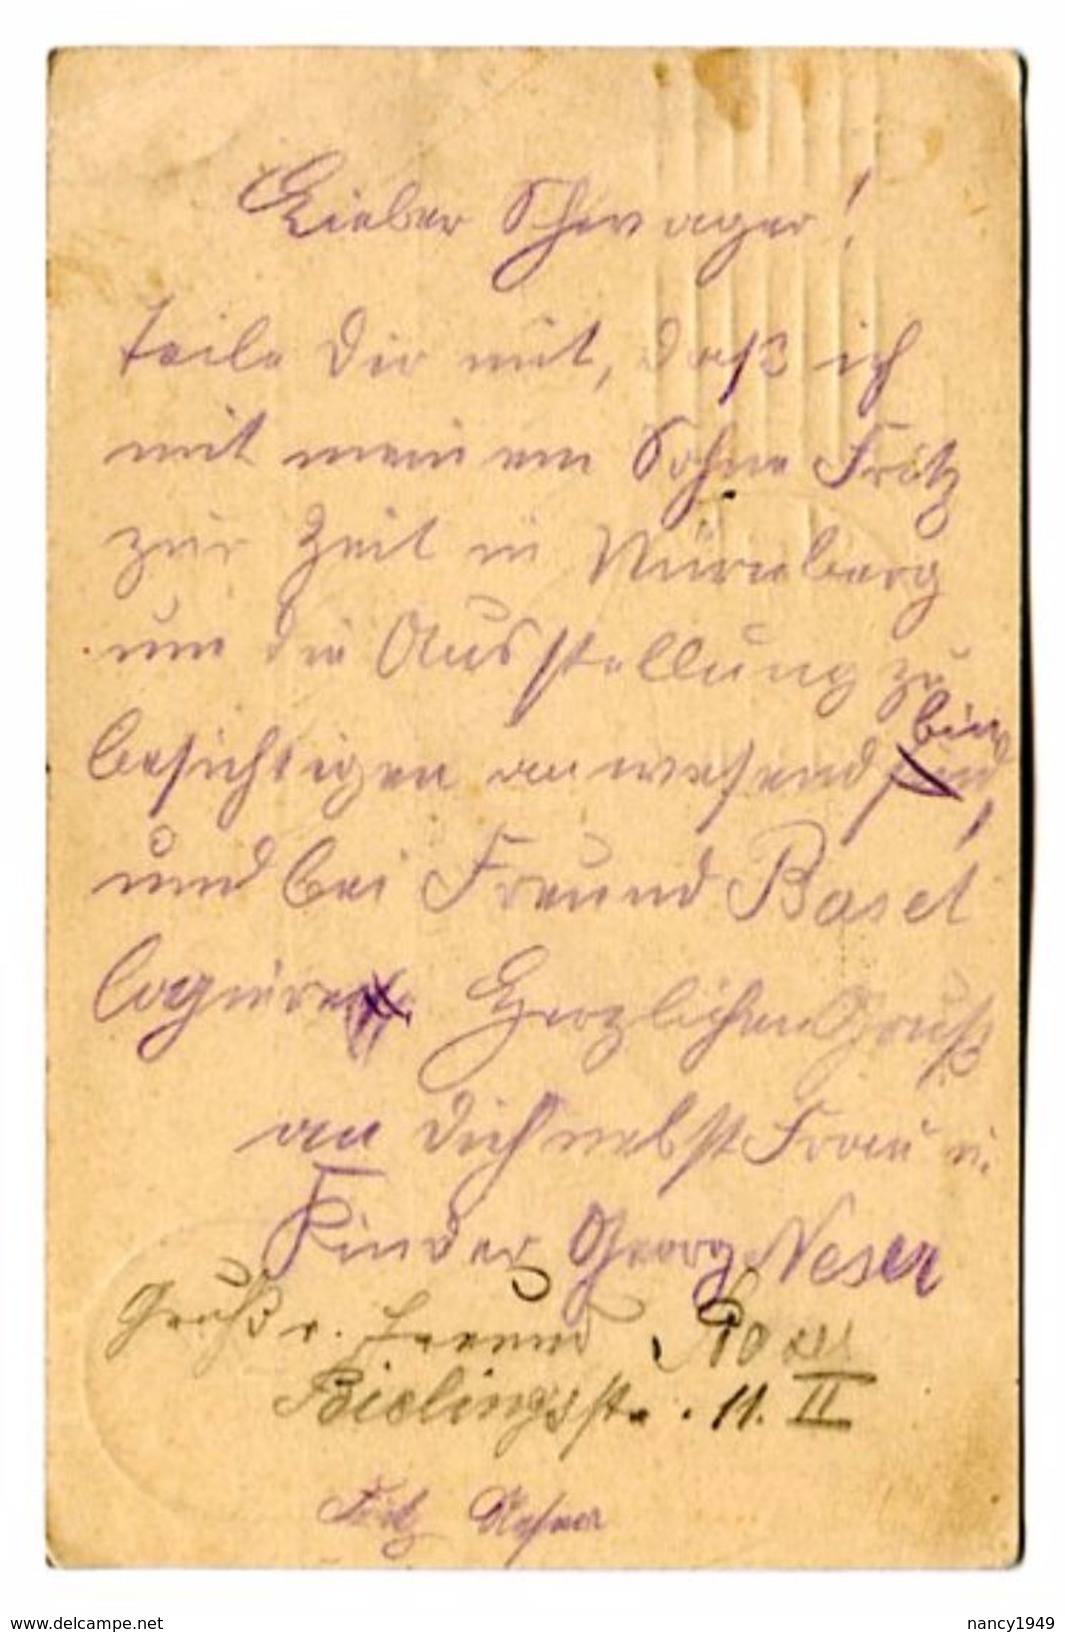 Lieber Schwager!
teile Dir mit, daß ich
mit meinem Sohne Fritz
zur Zeit in Nürnberg
um die Ausstellung zu
besichtigen anwesend bin,
und bei Freund Basel
logiere. Herzlichen Gruß
an Dich nebst Frau u.
Kinder Georg Neser
Gruß v. Freund
Bielingsstr. 11. II
Fritz
www.delcampe.net
nancy1949